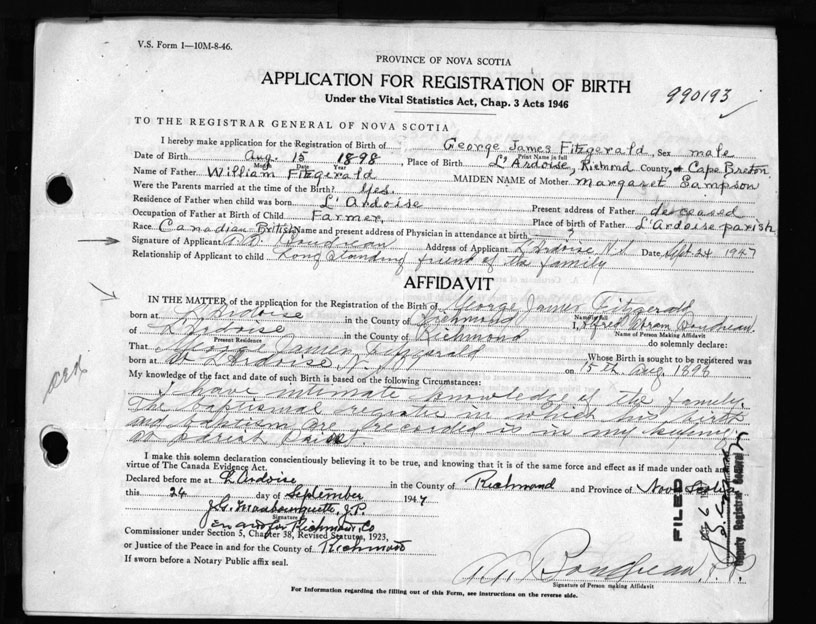 V.S. Form 1—10M-8-46.
PROVINCE OF NOVA SCOTIA
APPLICATION FOR REGISTRATION OF BIRTH
Under the Vital Statistics Act, Chap. 3 Acts 1946
990193
TO THE REGISTRAR GENERAL OF NOVA SCOTIA
I hereby make application for the Registration of Birth of George James Fitzgerald, Sex male
Print Name in full
Date of Birth Aug. 15 1898, Place of Birth L'Ardoise, Richmond County, Cape Breton
Month Date Year
Name of Father William Fitzgerald MAIDEN NAME of Mother Margaret Sampson
Were the Parents married at the time of Birth? Yes.
Residence of Father when child was born L'Ardoise Present address of Father deceased
Occupation of Father at Birth of Child Farmer, Place of birth of Father L'Ardoise parish
Race Canadian British Name and present address of Physician in attendance at birth ?
Signature of Applicant Boudreau Address of Applicant L'Ardoise N.S Date Sept. 24 1947
Relationship of Applicant to child Long standing friend of the family
AFFIDAVIT
IN THE MATTER of the application for the Registration of Birth of George James Fitzgerald
Name in full
born at L'Ardoise in the County of Richmond I, Alfred Boudreau
Name of Person Making Affidavit
of L'Ardoise in the County of Richmond do solemnly declare:
Present Residence
That George James Fitzgerald Whose Birth is sought to be registered was
born at L'Ardoise, on 15th Aug 1898
My knowledge of the fact and date of such Birth is based on the following Circumstances:
I have intimate knowledge of the family.
The Baptismal register in which his birth
and Baptism are recorded is in my keeping
at parish
I make this solemn declaration conscientiously believing it to be true, and knowing that it is of the same force and effect as if made under oath and
virtue of The Canada Evidence Act.
Declared before me at L'Ardoise in the County of Richmond and Province of Nova Scotia
this 24 day of September 1947
J.P.
Signature
in and for Richmond Co
Commissioner under Section 5, Chapter 38, Revised Statutes, 1923,
or Justice of the Peace in and for the County of Richmond
If sworn before a Notary Public affix seal.
Boudreau, P.P.
Signature of Person making Affidavit
For Information regarding the filling out of this Form, see instructions on the reverse side.
FILED
Deputy Registrar General